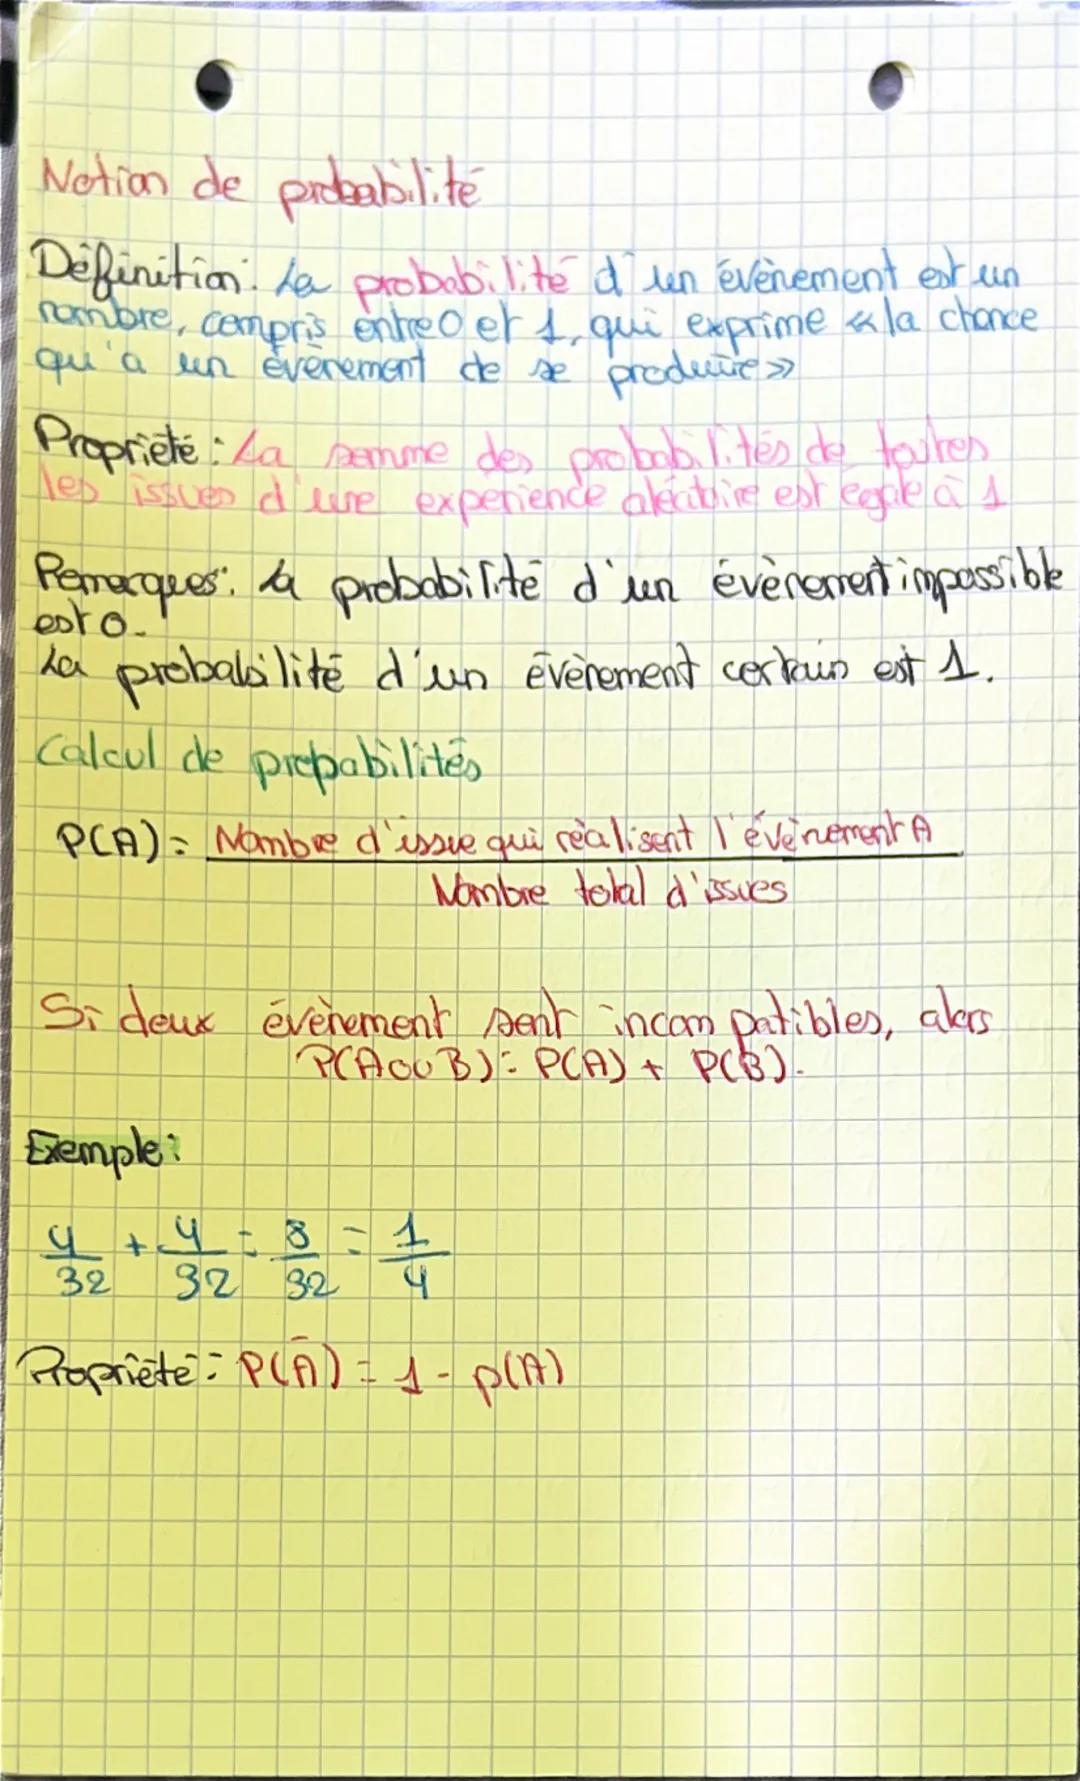 Notion de probabilité
Définition: La probabilité d'un évènement est un
nombre, compris entre 0 et 1, qui exprime «la chance
qu'a un évènement de se produire»
Propriété: La somme des probabilités de toutes
les issues d'une expérience aléatoire est égale à 1
Remarques: La probabilité d'un évènement impossible
est 0.
La probabilité d'un évènement certain est 1.
Calcul de probabilités
P(A) = Nombre d'issue qui réalisent l'évènement A
Nombre total d'issues
Si deux évènement sont incompatibles, alors
P(A ou B) = P(A) + P(B).
Exemple:
4/32 + 4/32 = 8/32 = 1/4
Propriété: P(Ā) = 1 - p(A)